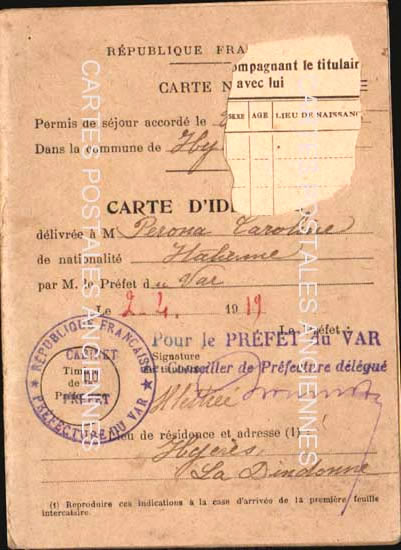 RÉPUBLIQUE FRA
ompagnant le titulair
avec lui
CARTE N
E
SEXE AGE LIEU DE NAISSANC
Permis de séjour accordé le
Dans la commune de Hy
CARTE D'IDE
délivrée à M Perona Caroline
de nationalité Italienne
par M. le Préfet du Var
Le 2-4. 1919
Le Préfet :
Pour le PRÉFET du VAR
Signature
du titulaire
Le Conseiller de Préfecture délégué
RÉPUBLIQUE FRANÇAISE
CABINET
DU
PRÉFET
PRÉFECTURE DU VAR
Timbre
de la
Préfecture
Illettrée
Lieu de résidence et adresse (1)
Hyères
La Dindonne
(1) Reproduire ces indications à la case d'arrivée de la première feuille
intercalaire.
CARTES POSTALES ANCIENNES
CARTES POSTALES ANCIENNES